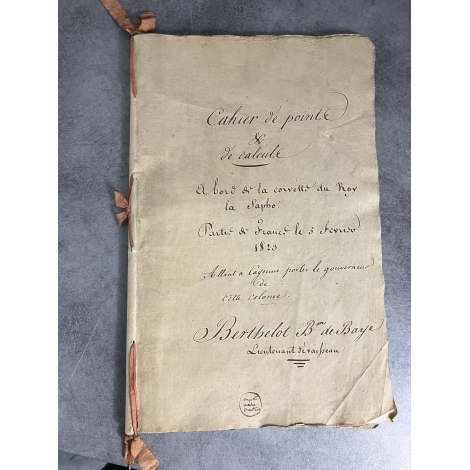 Cahier de pointe
&
de calcule
A bord de la corvette du Roy
la Sapho.
Partie de France le 5 fevrier
1823
Allant a Cayenne porter le gouverneur
de
cette colonie.
Berthelot Bon de Baye
Lieutenant de vaisseau